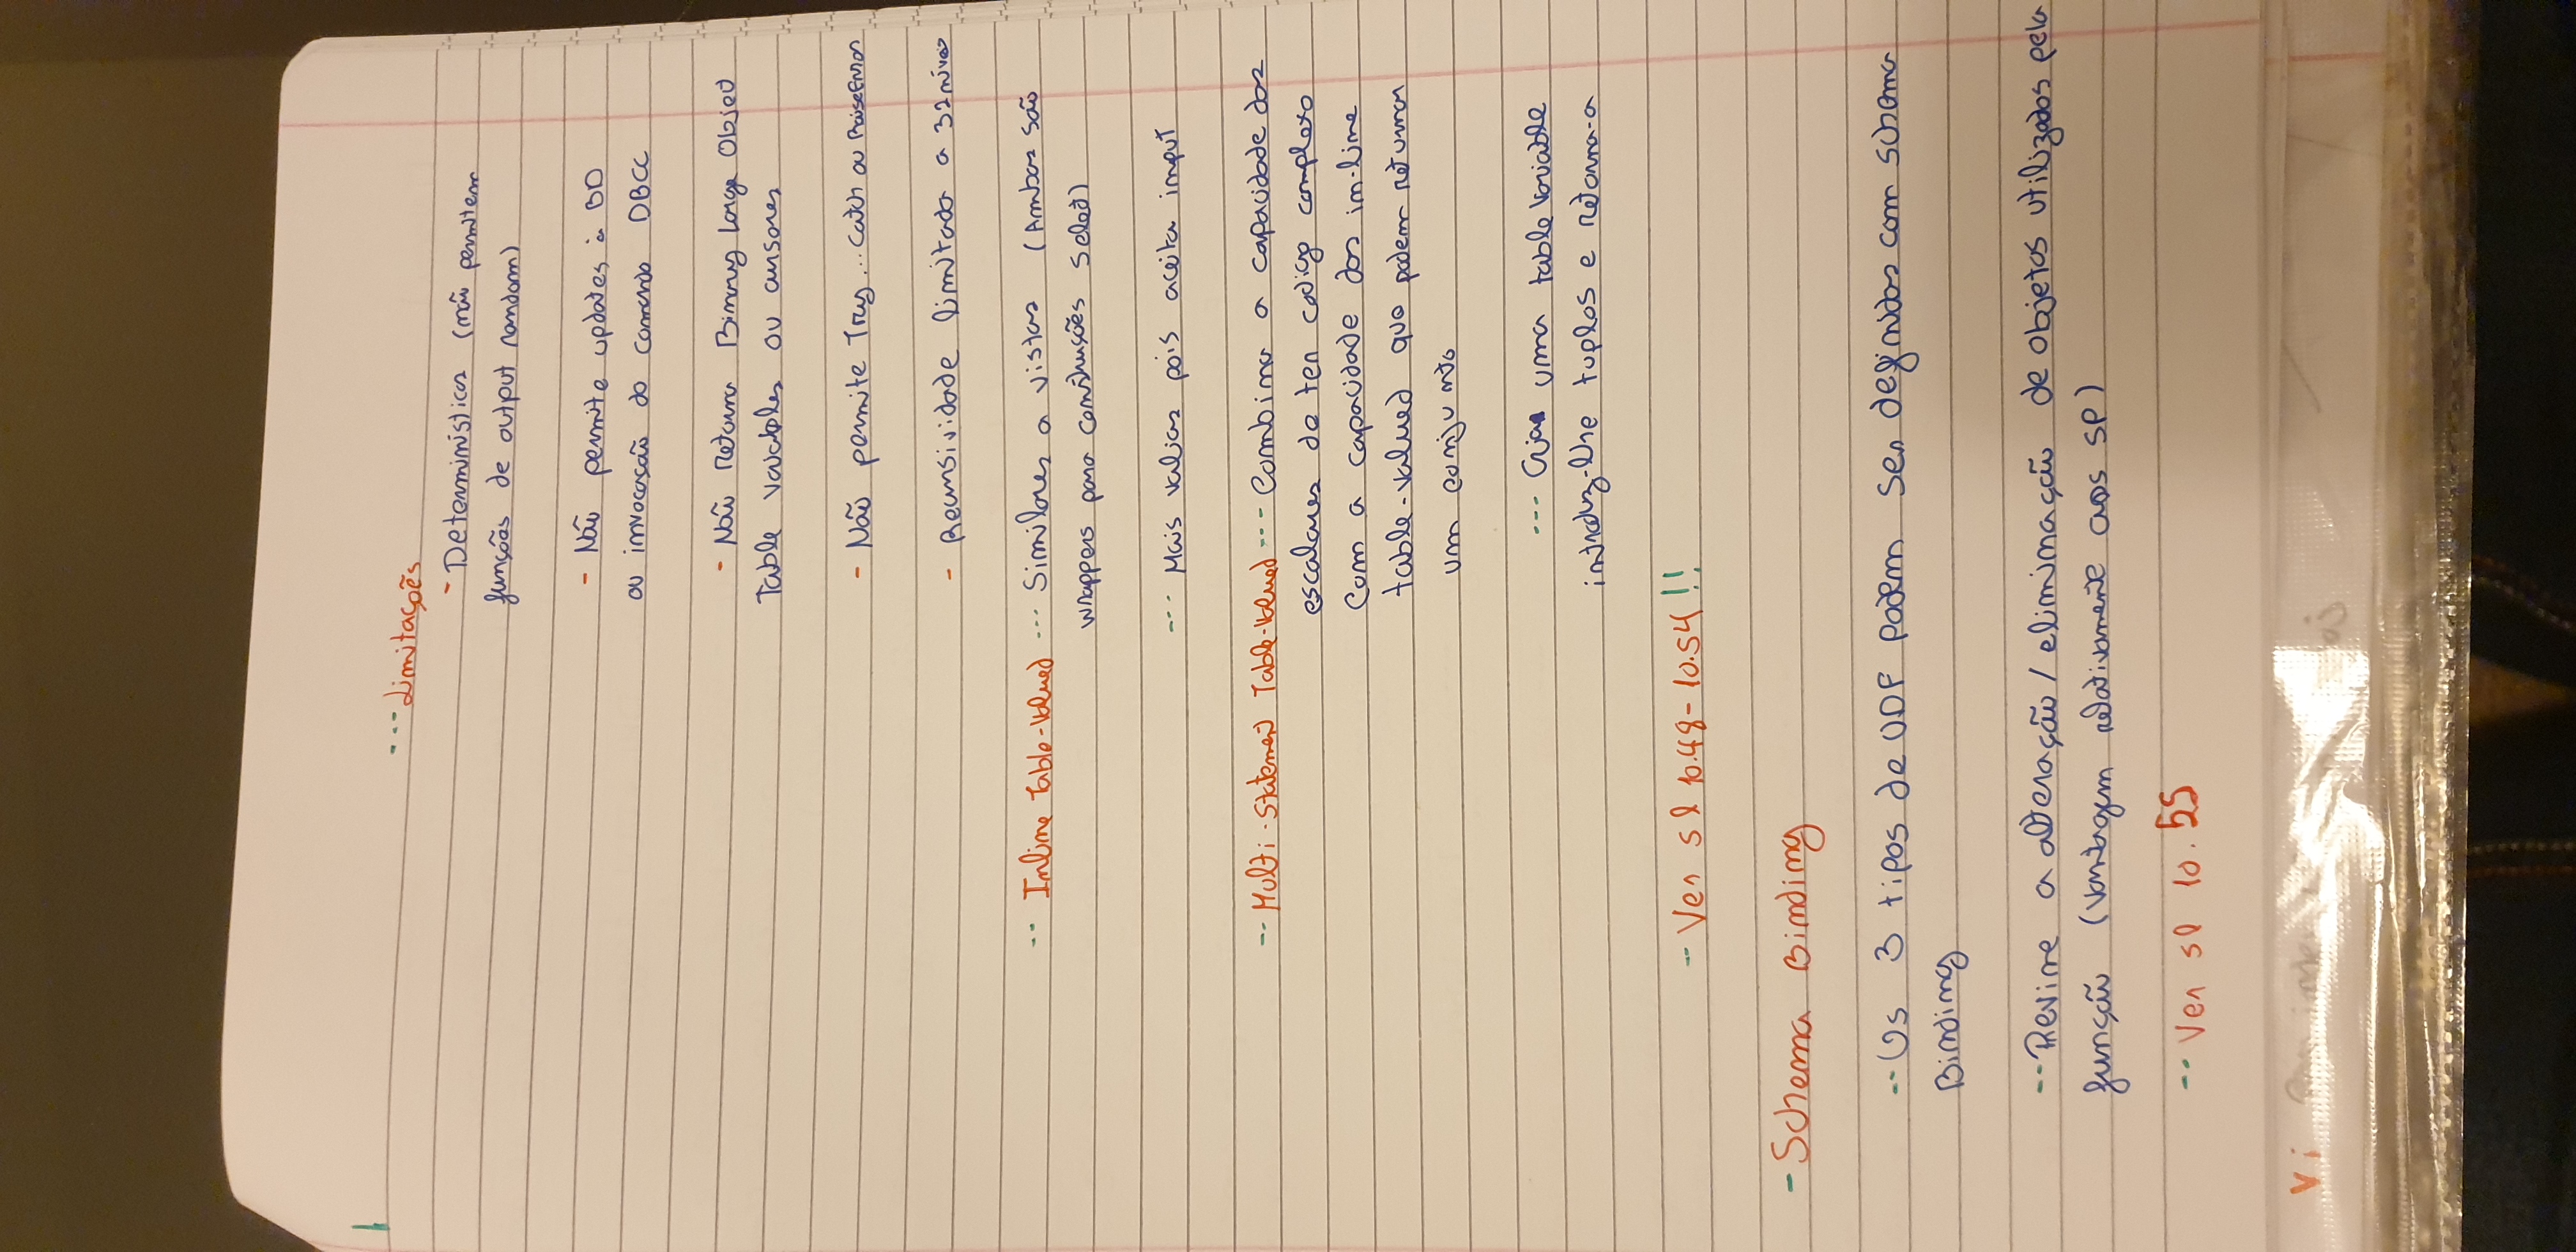 --- Limitações
- Deterministicas (não permitem
funções de output random)
- Não permite updates à BD
ou invocação do comando DBCC
- Não Retorna Binary Large Object
Table variables ou cursores
- Não permite Try...Catch ou RaiseError
- Recursividade limitada a 32 níveis
-- Inline Table-Valued --- Similares a vistas (Ambas são
wrappers para construções Select)
--- Mais valias pois aceita input
-- Multi-Statement Table-Valued --- Combina a capacidade das
escalares de ter codigo complexo
Com a capacidade das in-line
table-valued que podem retornar
um conjunto
--- Cria uma table variable
introduz-lhe tuplos e retorna-a
- Ver sl 10.48-10.54!!
- Schema Binding
-- Os 3 tipos de UDF podem ser definidas com schema
Binding
-- Previne a alteração/eliminação de objetos utilizados pela
função (Vantagem relativamente aos SP)
-- Ver sl 10.55
Vi